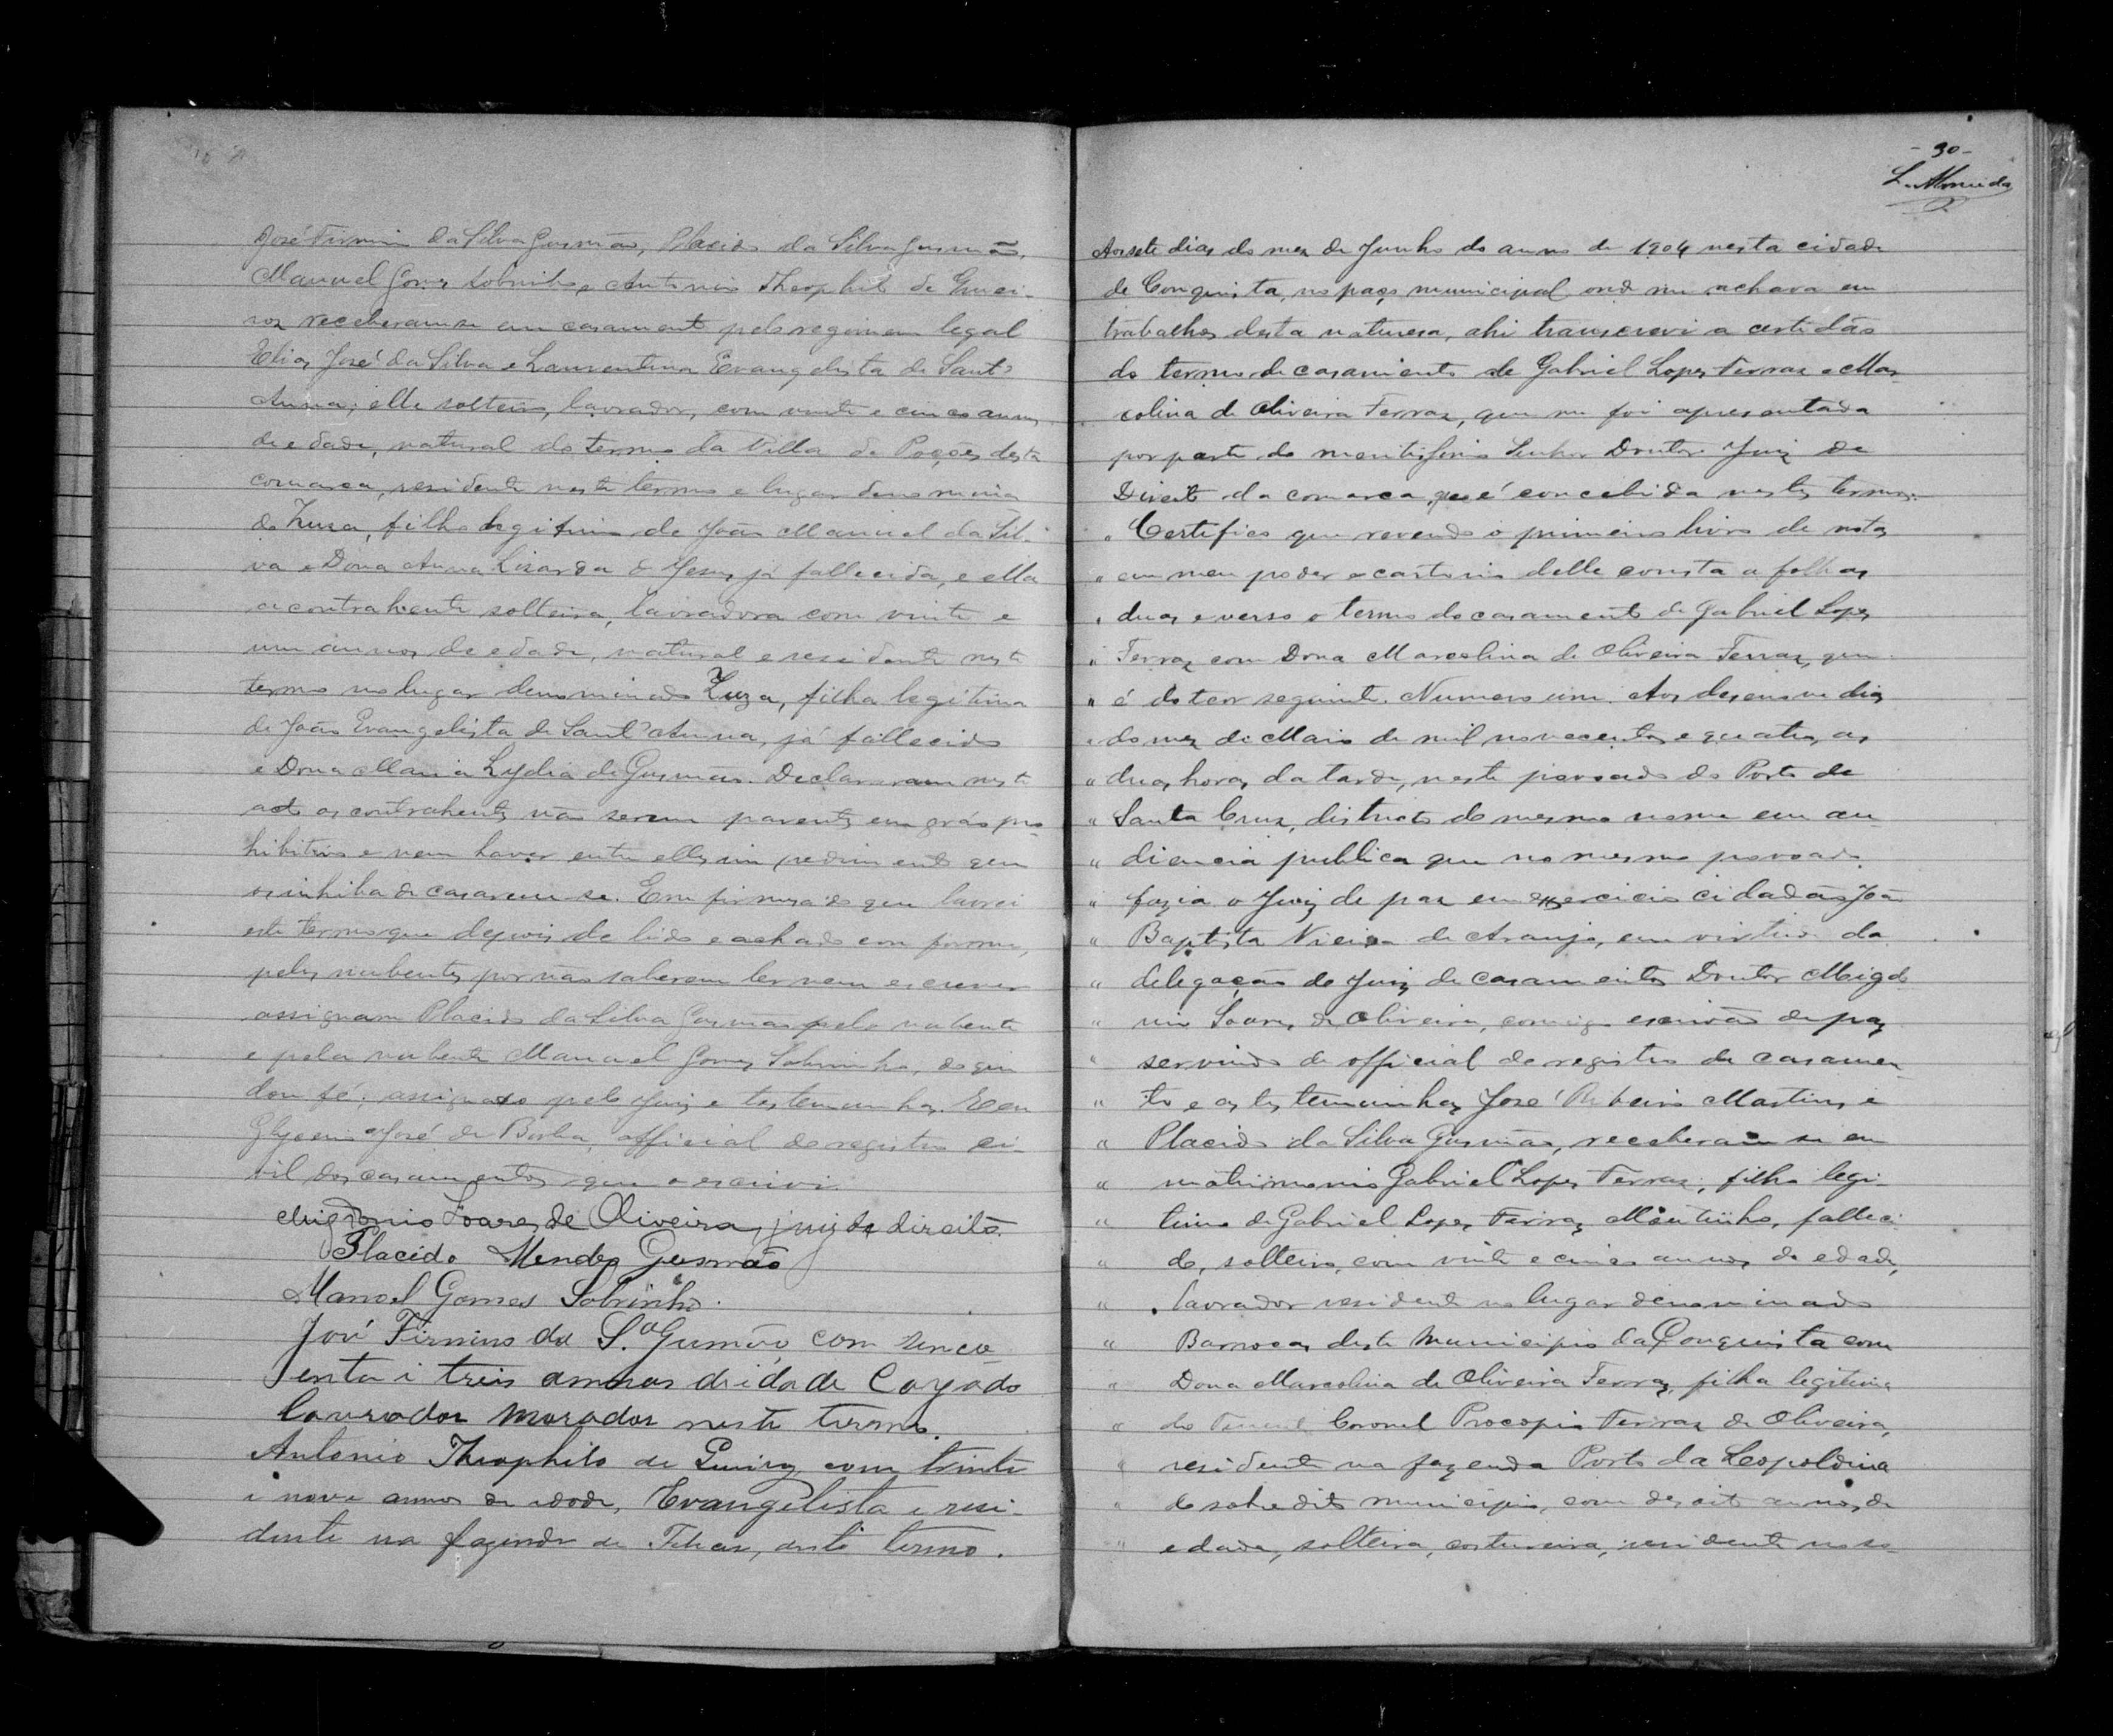 José Firmino da Silva Gusmão, Placido da Silva Gusmão,
Manuel Gomes Sobrinho, Antonio Theophilo de
receberam-se em casamento pelo regimem legal
Elias José da Silva e Laurentina Evangelista de Sant'
Anna; elle solteiro, lavrador, com vinte e cinco annos
de edade, natural do termo da Villa de Poções desta
comarca, residente neste termo e lugar denomina
do Zuza, filho legitimo de João Manuel da Sil-
va e Dona Anna Lisarda de Jesus já fallecida, e ella
a contrahente solteira, lavradora com vinte e
um annos de edade, natural e residente neste
termo no lugar denominado Zuza, filha legitima
de João Evangelista de Sant'Anna, já fallecido
e Dona Maria Lydia de Gusmão. Declararam neste
acto os contrahentes não serem parentes em gráo pro-
hibitivo e nem haver entre elles impedimento que
os inhiba de casarem-se. Em firmesa do que lavrei
este termo que depois de lido e achado em forma,
pelos nubentes por não saberem ler nem escrever
assignam Placido da Silva Gusmão pelo nubente
e pela nubente Manuel Gomes Sobrinho, do que
dou fé; assignado pelo Juiz e testemunhas. E eu
Glycerio José de Borba, official do registro ci-
vil dos casamentos que o escrivi.
Migdonio Soares de Oliveira, juiz de direito.
Placido Mendes Gusmão
Manoel Gomes Sobrinho.
José Firmino da S.ª Gusmão com sinco
enta i treis annos de idade Cazado
lavrador morador neste termo.
Antonio Theophilo de com trinta
e nove annos de idade, Evangelista e resi-
dente na fazenda de deste termo.
- 30 -
L. Almeida
Aos sete dias do mez de Junho do anno de 1904 nesta cidade
de Conquista, no paço municipal onde me achava em
trabalhos desta naturesa, ahi transcrevi a certidão
do termo de casamento de Gabriel Lopes Ferraz e Mar
colina de Oliveira Ferraz, que me foi apresentada
por parte do meritissimo Senhor Doutor Juiz de
Direito da comarca, que é concebida nestes termos:
" Certifico que revendo o primeiro livro de notas
" em meu poder e cartorio delle consta a folhas
" duas e verso o termo do casamento de Gabriel Lopes
" Ferraz com Dona Marcolina de Oliveira Ferraz, que
" é do teor seguinte. Numero um. Aos desenove dias
" do mez de Maio de mil novecentos e quatro, as
" duas horas da tarde, neste povoado do Porto de
" Santa Cruz, districto do mesmo nome em au
" diencia publica que no mesmo povoado
" fazia o Juiz de paz em exercicio cidadão João
" Baptista Vieira de Araujo, em virtude da
" delegação do Juiz de casamentos Doutor Migdo
" nio Soares de Oliveira, comigo escrivão de paz
" servindo de official do registro de casamen
" to e as testemunhas José Ribeiro Martins e
" Placido da Silva Gusmão, receberam se em
" matrimonio Gabriel Lopes Ferraz, filho legi-
" timo de Gabriel Lopes Ferraz Moutinho, falleci
" do, solteiro, com vinte e cinco annos de edade,
" lavrador residente no lugar denominado
" Barrocas deste Municipio da Conquista com
" Dona Marcolina de Oliveira Ferraz, filha legitima
" do Tenente Coronel Procopio Ferraz de Oliveira,
" residente na fazenda Porto da Leopoldina
" do sobredito municipio, com desoito annos de
" edade, solteira, costureira, residente no so-